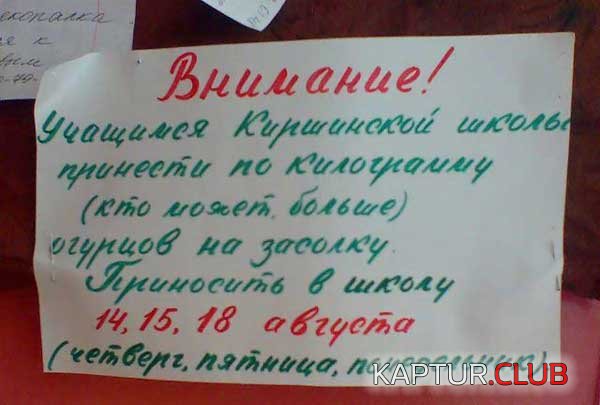 екопалка
к
Внимание!
Учащимся Киршинской школы
принести по килограмму
(кто может, больше)
огурцов на засолку.
Приносить в школу
14, 15, 18 августа
(четверг, пятница, понедельник)
KAPTUR.CLUB